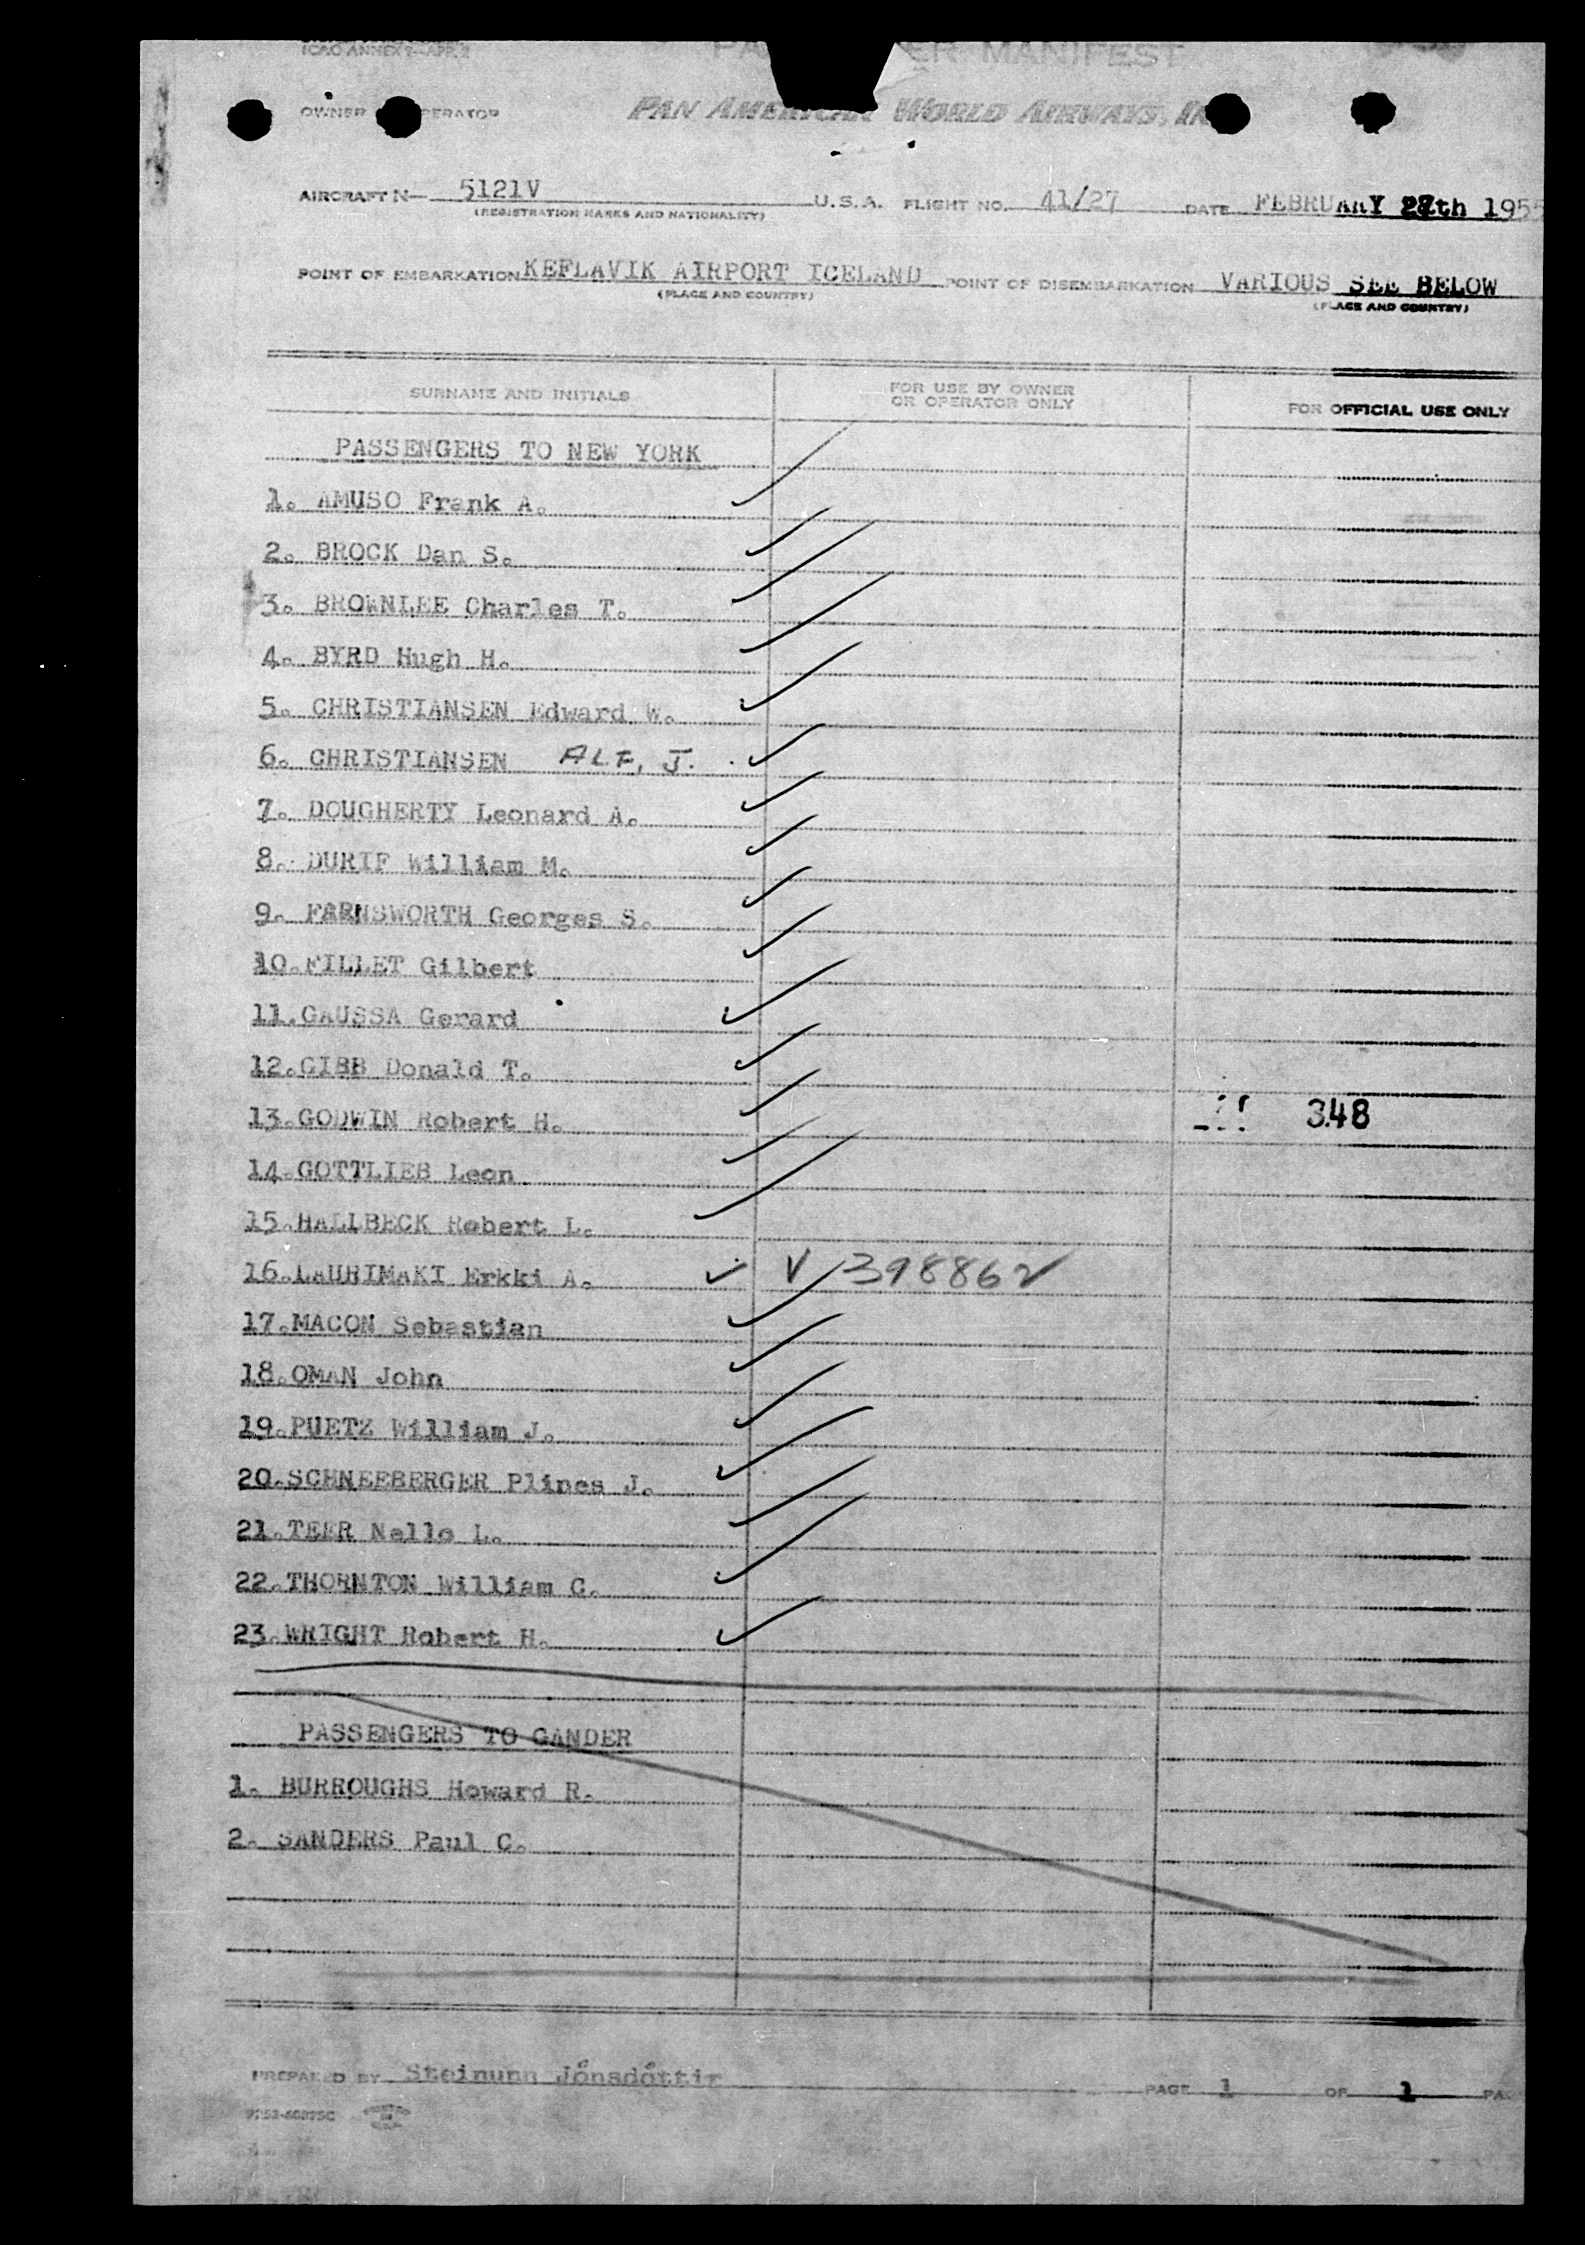 ICAO ANNEX 9-APP. 2
PASSENGER MANIFEST
OWNER OR OPERATOR PAN AMERICAN WORLD AIRWAYS, IN
AIRCRAFT N— 5121V U.S.A. FLIGHT NO. 41/27 DATE FEBRUARY 28th 1955
(REGISTRATION MARKS AND NATIONALITY)
POINT OF EMBARKATION KEFLAVIK AIRPORT ICELAND POINT OF DISEMBARKATION VARIOUS SEE BELOW
(PLACE AND COUNTRY) (PLACE AND COUNTRY)
SURNAME AND INITIALS FOR USE BY OWNER OR OPERATOR ONLY FOR OFFICIAL USE ONLY
PASSENGERS TO NEW YORK
1. AMUSO Frank A.
2. BROCK Dan S.
3. BROWNLEE Charles T.
4. BYRD Hugh H.
5. CHRISTIANSEN Edward W.
6. CHRISTIANSEN ALF, J.
7. DOUGHERTY Leonard A.
8. DURIF William M.
9. FARNSWORTH Georges S.
10. FILLET Gilbert
11. GAUSSA Gerard
12. GIBB Donald T.
13. GODWIN Robert H. 348
14. GOTTLIEB Leon
15. HALLBECK Robert L.
16. LAURIMAKI Erkki A. V 398862
17. MACON Sebastian
18. OMAN John
19. PUETZ William J.
20. SCHNEEBERGER Plines J.
21. TEER Nello L.
22. THORNTON William C.
23. WRIGHT Robert H.
PASSENGERS TO GANDER
1. BURROUGHS Howard R.
2. SANDERS Paul C.
PREPARED BY Steinunn Jónsdóttir PAGE 1 OF 1 PA